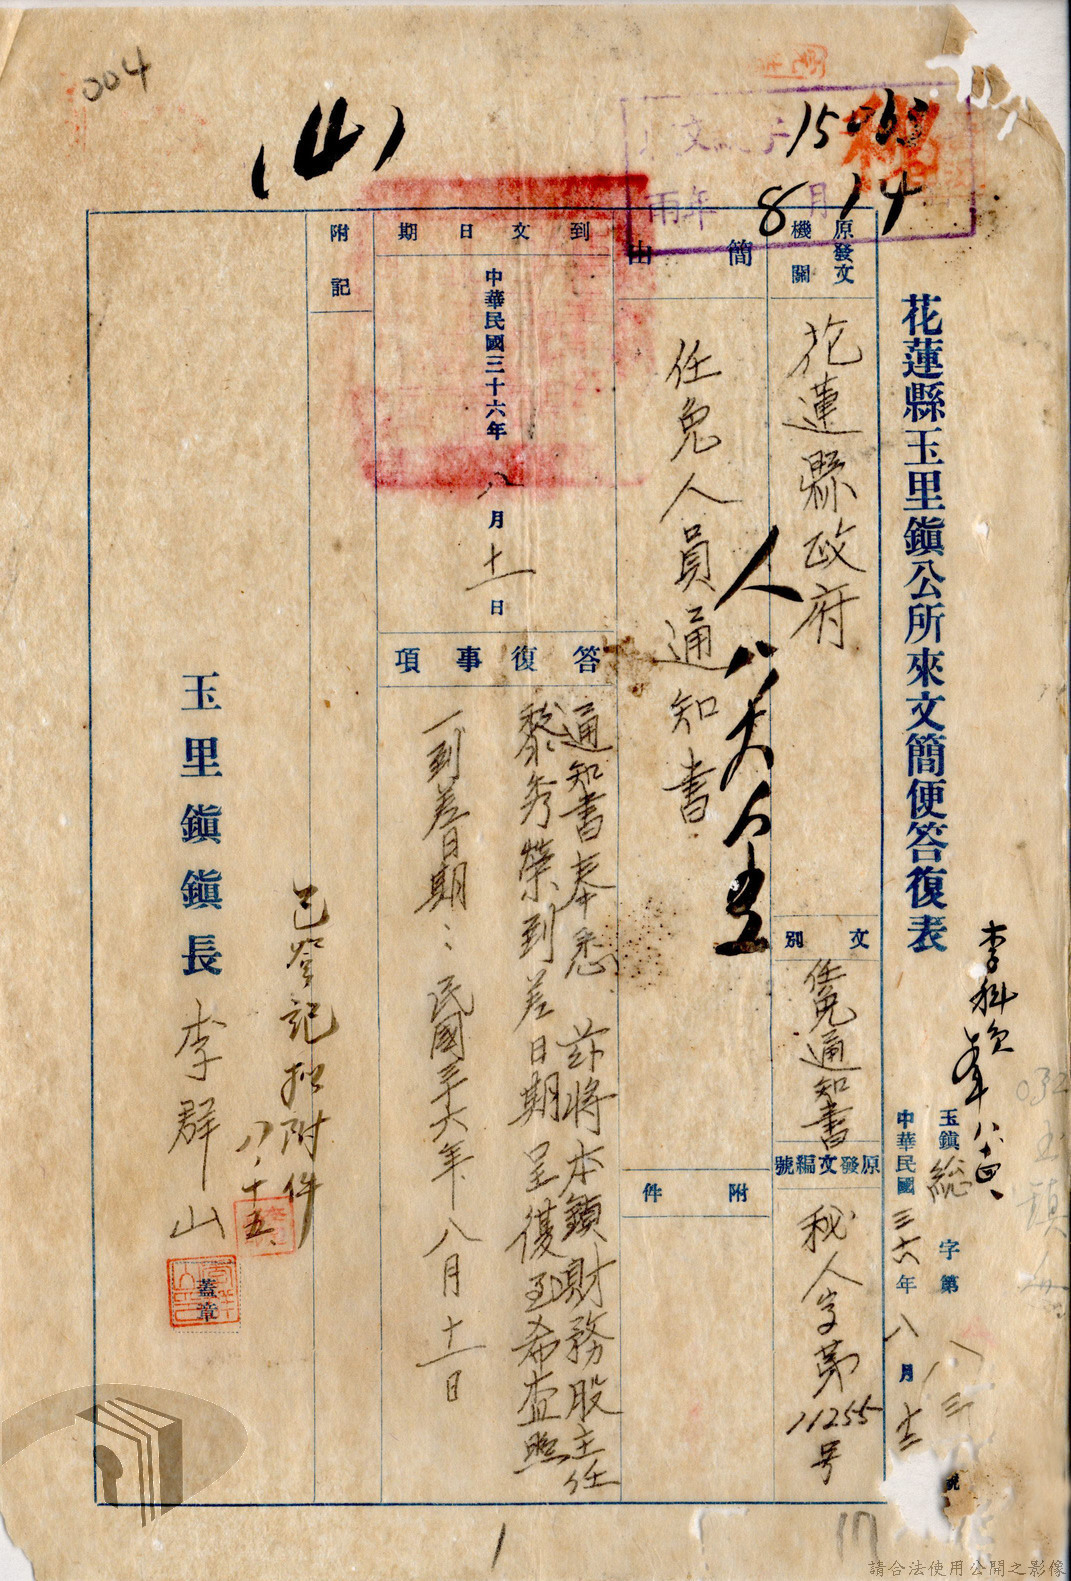 004
(4)
15
8月14
花蓮縣玉里鎮公所來文簡便答復表
李科員
玉鎮総字第八三號
中華民國三六年八月十三
原發文機關
花蓮縣政府
文別
任免通知書
原發文編號
秘人字第11255号
簡由
任免人員通知書
附件
到文日期
中華民國三十六年八月十一日
答復事項
通知書奉悉 茲將本鎮財務股主任
黎秀榮到差日期呈復至希查照
一到差日期:民國三十六年八月十一日
附記
已登記拟附件
八、十五、
玉里鎮鎮長李群山
蓋章
1
17
請合法使用公開之影像